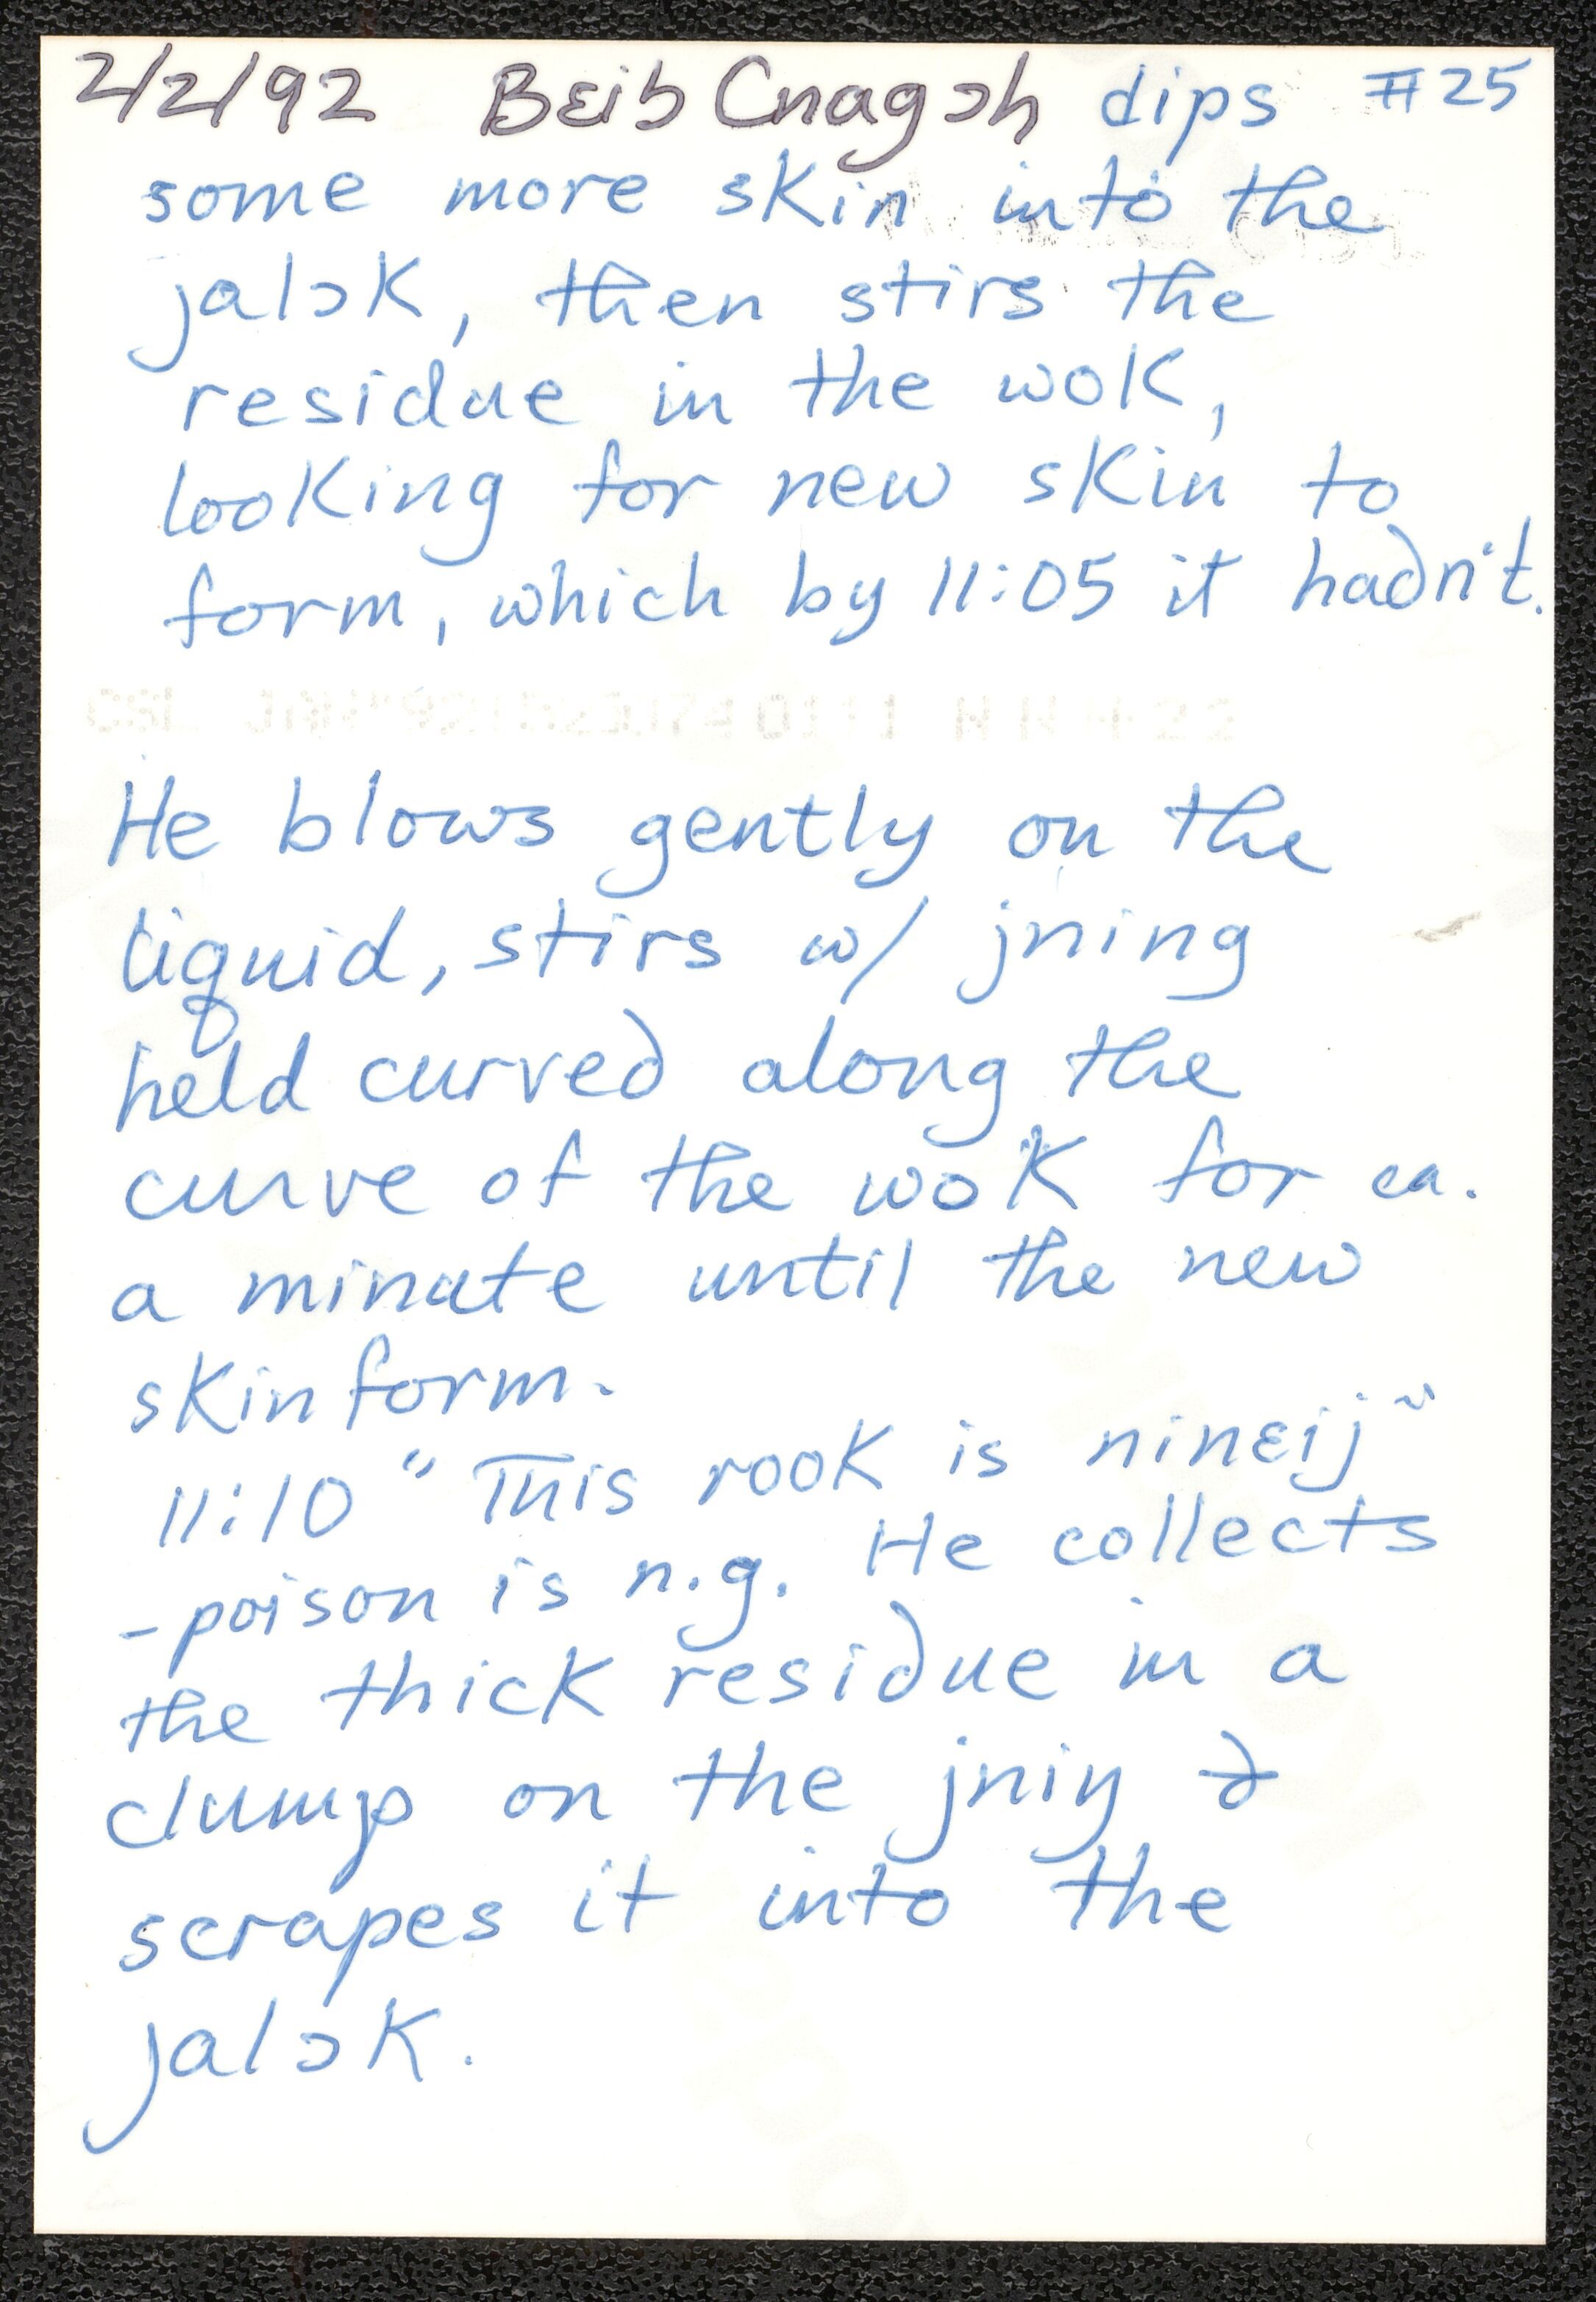 2/2/92 Bɛib Cnagɔh dips #25
some more skin into the
jalɔk, then stirs the
residue in the wok,
looking for new skin to
form, which by 11:05 it hadn't.
He blows gently on the
liquid, stirs w/ jning
held curved along the
curve of the wok for ca.
a minute until the new
skin form.
11:10 "This rook is ninɛij"
- poison is n.g. He collects
the thick residue in a
clump on the jniŋ &
scrapes it into the
jalɔk.